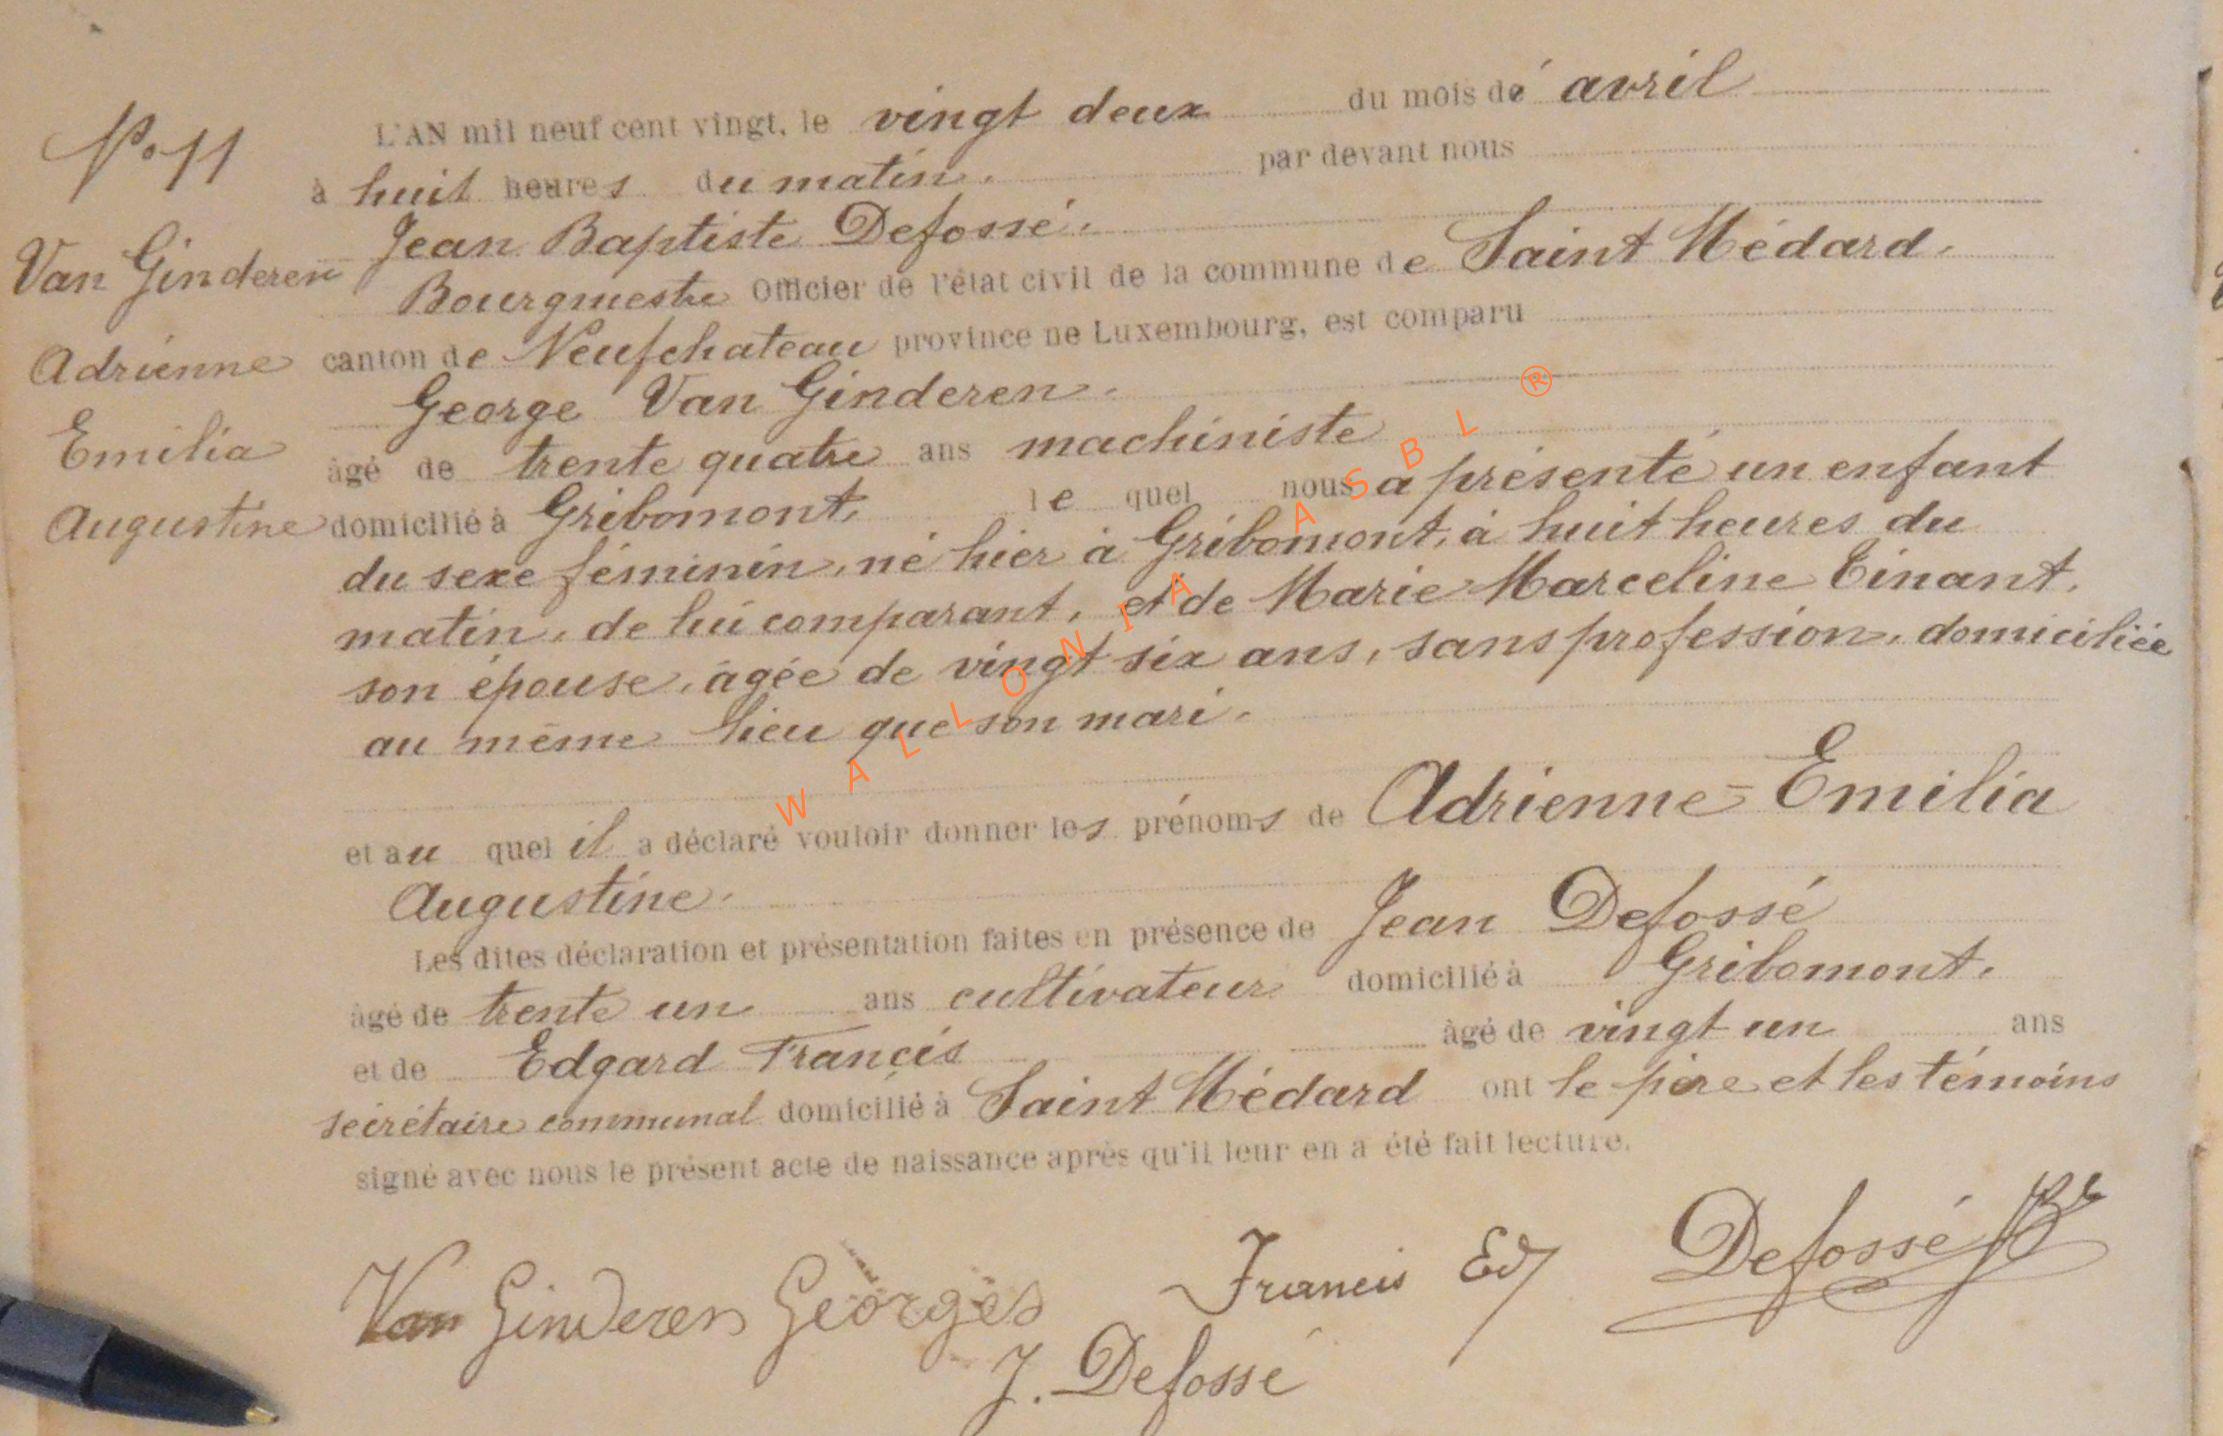 N° 11
Van Ginderen
Adrienne
Emilia
Augustine
L'AN mil neuf cent vingt, le vingt deux du mois de avril
à huit heures du matin. par devant nous
Jean Baptiste Defossé.
Bourgmestre Officier de l'état civil de la commune de Saint Médard.
canton de Neufchateau province ne Luxembourg, est comparu
George Van Ginderen.
âgé de trente quatre ans machiniste
domicilié à Gribomont, le quel nous a présenté un enfant
du sexe féminin, né hier à Gribomont, à huit heures du
matin, de lui comparant, et de Marie Marceline Tinant,
son épouse, âgée de vingt six ans, sans profession, domiciliée
au même lieu que son mari.
et au quel il a déclaré vouloir donner les prénoms de Adrienne-Emilia
Augustine.
Les dites déclaration et présentation faites en présence de Jean Defossé
âgé de trente un ans cultivateur domicilié à Gribomont.
et de Edgard Francis âgé de vingt un ans
secrétaire communal domicilié à Saint Médard ont le père et les témoins
signé avec nous le présent acte de naissance après qu'il leur en a été fait lecture.
Van Ginderen Georges Francis Ed Defossé JB
J. Defossé
WALLONIA ASBL ®